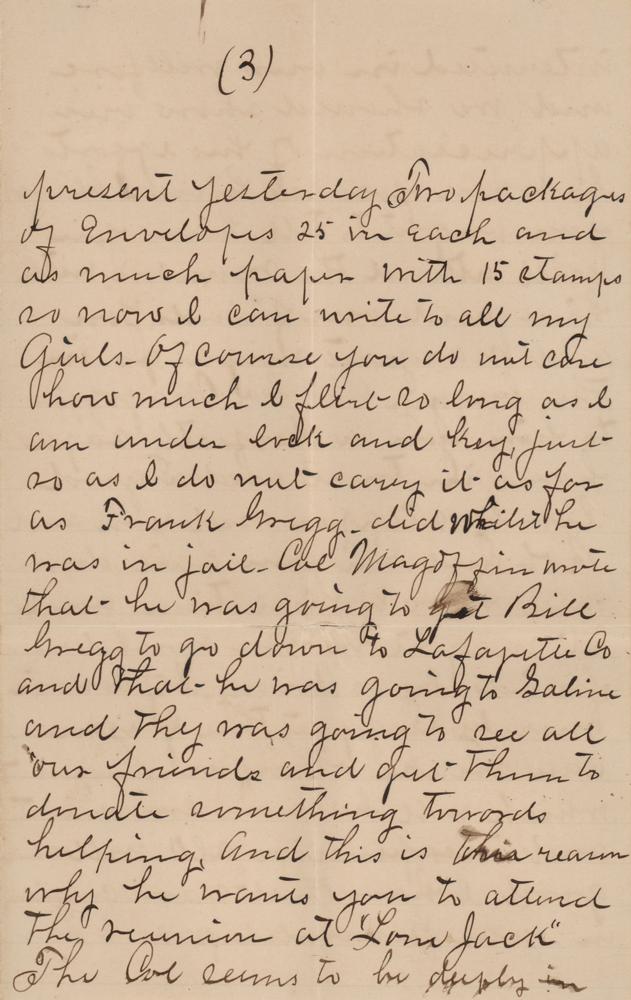 (3)
present yesterday Two packages
of Envelopes 25 in each and
as much paper with 15 stamps
so now I can write to all my
Girls - Of course you do not care
how much I flirt so long as I
am under lock and key, just
so as I do not carry it as far
as Frank Gregg - did whilst he
was in jail - Col Magoffin wrote
that he was going to get Bill
Gregg to go down to Lafayette Co
and that he was going to Saline
and they was going to see all
our friends and get them to
donate something towards
helping. And this is this reason
why he wants you to attend
the reunion at "Lone Jack"
The Col seems to be deeply in